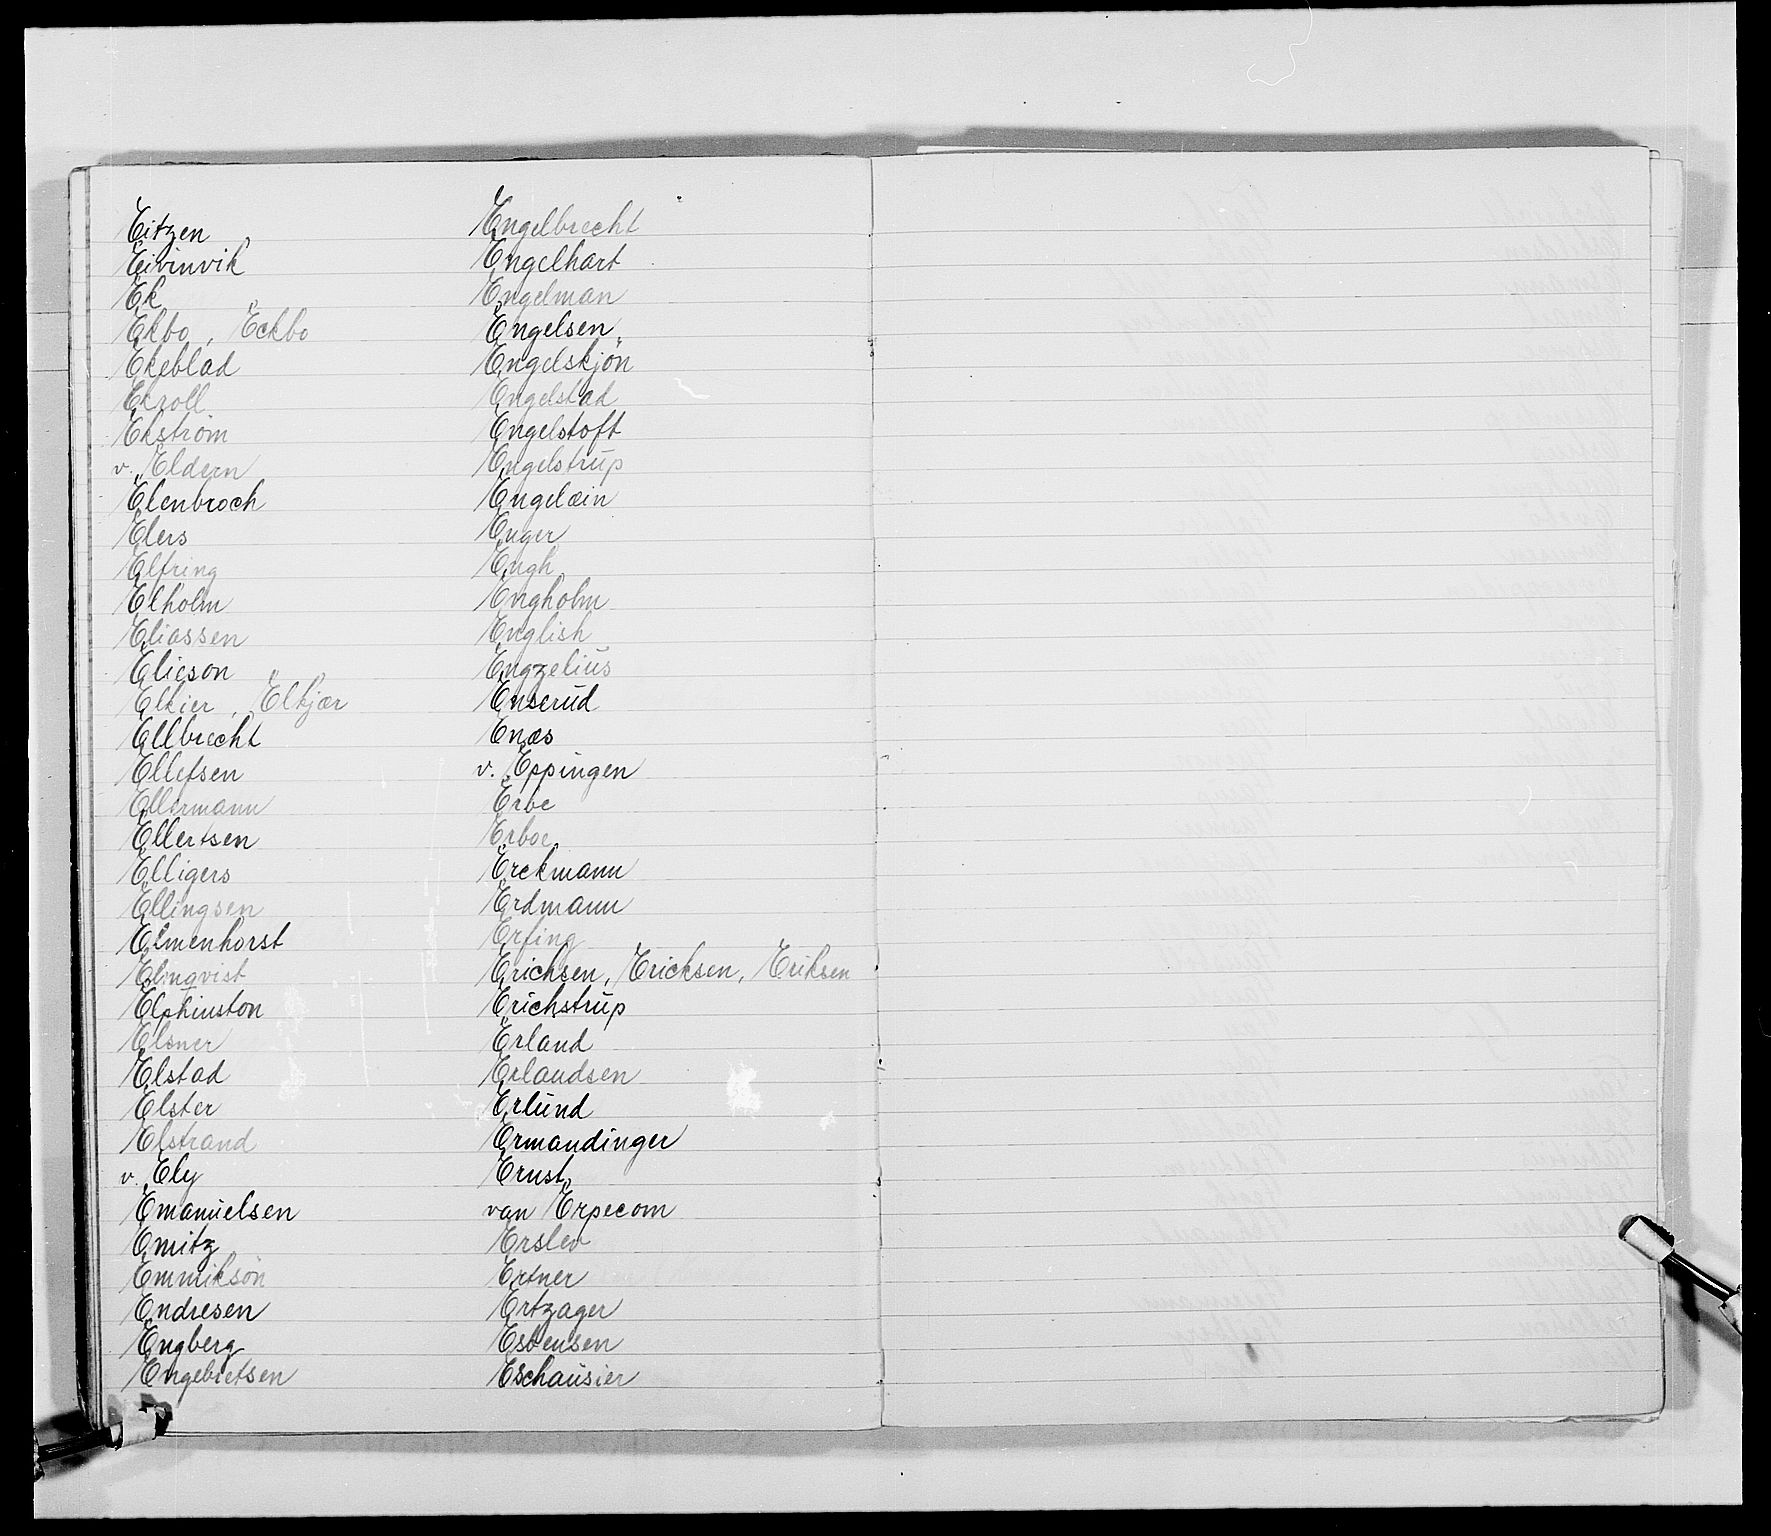 Eitzen
Eivinvik
Ek
Ekbo, Eckbo
Ekeblad
Ekroll
Ekström
v. Eldern
Elenbroch
Elers
Elfring
Elholm
Eliassen
Elieson
Elkier, Elkjær
Ellbrecht
Ellefsen
Ellermann
Ellertsen
Elligers
Ellingsen
Elmenhorst
Elmqvist
Elphinston
Elsner
Elstad
Elster
Elstrand
v. Ely
Emanuelsen
Emitz
Emmiksøn
Endresen
Engberg
Engebretsen
Engelbrecht
Engelhart
Engelman
Engelsen
Engelskjön
Engelstad
Engelstoft
Engelstrup
Engelæin
Enger
Engh
Engholm
English
Engzelius
Enserud
Enæs
v. Eppingen
Erbe
Erboe
Erckmann
Erdmann
Erfing
Erichsen, Ericksen, Eriksen
Erichstrup
Erland
Erlandsen
Erlund
Ermandinger
Ernst
van Erpecom
Erslev
Ertner
Ertzager
Esbensen
Eschausier